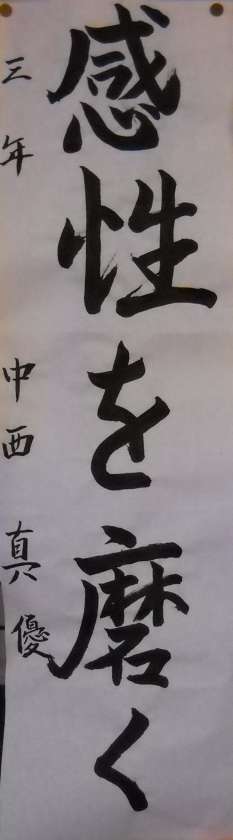 感性を磨く
三年 中西真優